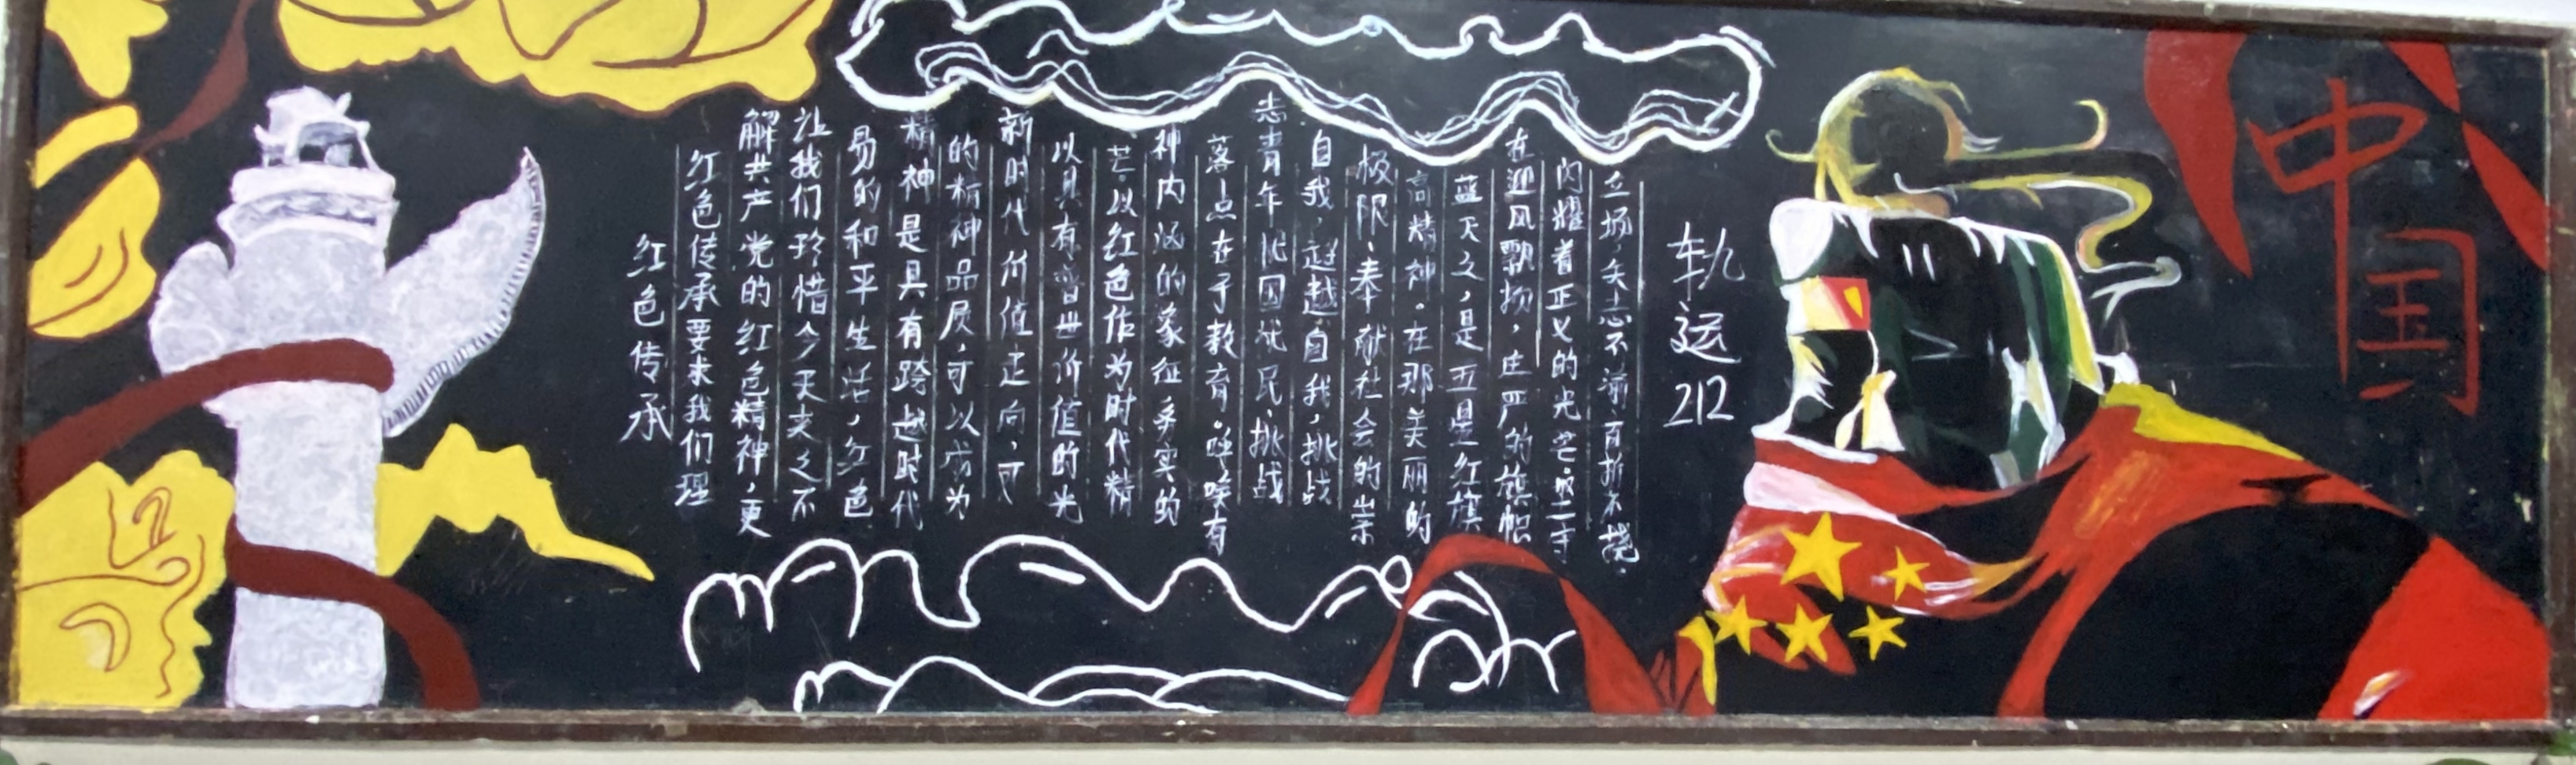 红色传承
红色传承要求我们理
解共产党的红色精神，更
让我们珍惜今天来之不
易的和平生活，红色
精神是具有跨越时代
的精神品质，可以成为
新时代价值走向，可
以具有普世价值的光
芒。以红色作为时代精
神内涵的象征，务实的
落点在于教育。呼唤有
志青年忧国忧民、挑战
自我，超越自我，挑战
极限、奉献社会的崇
高精神。在那美丽的
蓝天之，是五星红旗
在迎风飘扬，庄严的旗帜
闪耀着正义的光芒
立场，矢志不渝，百折不挠.
轨运212
中国